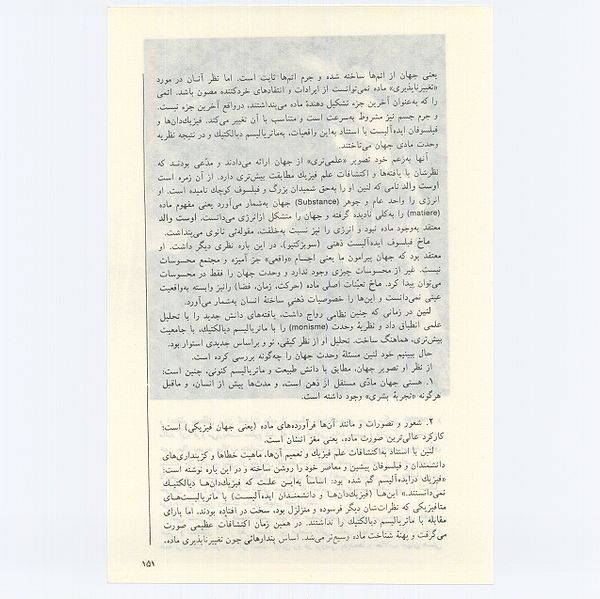 یعنی جهان از اتم‌ها ساخته شده و جرم اتم‌ها ثابت است. اما نظر آنان در مورد
«تغییرناپذیری» ماده نمی‌توانست از ایرادات و انتقادهای خردکننده مصون باشد. اتمی
را که به‌عنوان آخرین جزء تشکیل دهندهٔ ماده می‌پنداشتند، درواقع آخرین جزء نیست.
و جرم جسم نیز مشروط به‌سرعت است و متناسب با آن تغییر می‌کند. فیزیک‌دان‌ها و
فیلسوفان ایده‌آلیست با استناد به‌این واقعیات، به‌ماتریالیسم دیالکتیك و در نتیجه نظریه
وحدت مادی جهان می‌تاختند.
آنها به‌زعم خود تصویر «علمی‌تری» از جهان ارائه می‌دادند و مدّعی بودند که
نظرشان با یافته‌ها و اکتشافات علم فیزیك مطابقت بیش‌تری دارد. از آن زمره است
اوست والد نامی که لنین او را به‌حق شمیدان بزرگ و فیلسوف کوچك نامیده است. او
انرژی را واحد عام و جوهر (Substance) جهان به‌شمار می‌آورد یعنی مفهوم ماده
(matiere) را به‌کلی نادیده گرفته و جهان را متشکل ازانرژی می‌دانست. اوست والد
معتقد به‌وجود ماده نبود و انرژی را نیز نسبت به‌خلقت، مقوله‌ئی ثانوی می‌پنداشت.
ماخ فیلسوف ایده‌آلیست ذهنی (سوبژکتیو)، در این باره نظری دیگر داشت. او
معتقد بود که جهان پیرامون ما یعنی اجسام «واقعی» جز آمیزه و مجتمع محسوسات
نیست. غیر از محسوسات چیزی وجود ندارد و وحدت جهان را فقط در محسوسات
می‌توان پیدا کرد. ماخ تعیّنات اصلی ماده (حرکت، زمان، فضا) رانیز وابسته به‌واقعیت
عینی نمی‌دانست و این‌ها را خصوصیات ذهنی ساختهٔ انسان به‌شمار می‌آورد.
لنین در زمانی که چنین نظامی رواج داشت، یافته‌های دانش جدید را با تحلیل
علمی انطباق داد و نظریهٔ وحدت (monisme) را با ماتریالیسم دیالکتیك، با جامعیت
بیش‌تری، هماهنگ ساخت. تحلیل او از نظر کیفی، نو و براساس جدیدی استوار بود.
حال ببینیم خود لنین مسئلهٔ وحدت جهان را چگونه بررسی کرده است.
از نظر او تصویر جهان، مطابق با دانش طبیعت و ماتریالیسم کنونی، چنین است:
۱. هستی جهان مادّی مستقل از ذهن است، و مدت‌ها پیش از انسان، و ماقبل
هرگونه «تجربهٔ بشری» وجود داشته است.
۲. شعور و تصورات و مانند آن‌ها فرآورده‌های ماده (یعنی جهان فیزیکی) است؛
کارکرد عالی‌ترین صورت ماده، یعنی مغز انسان است.
لنین با استناد به‌اکتشافات علم فیزیك و تعمیم آن‌ها، ماهیت خطاها و کژپنداری‌های
دانشمندان و فیلسوفان پیشین و معاصر خود را روشن ساخته و در این باره نوشته است:
«فیزیك درایده‌آلیسم گم شده بود: اساساً به‌این علت که فیزیك‌دان‌ها دیالکتیك
نمی‌دانستند.» این‌ها (فیزیك‌دان‌ها و دانشمندان ایده‌آلیست) با ماتریالیست‌های
متافیزیکی که نظرات‌شان دیگر فرسوده و متزلزل بود، سخت در افتاده بودند، اما یارای
مقابله با ماتریالیسم دیالکتیك را نداشتند. در همین زمان اکتشافات عظیمی صورت
می‌گرفت و پهنهٔ شناخت ماده وسیع‌تر می‌شد. اساس پندارهائی چون تغییرناپذیری ماده،
۱۵۱